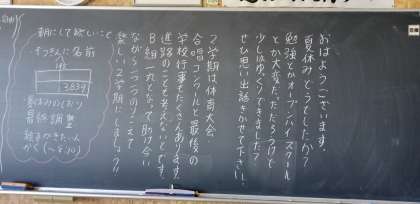 おはようございます。
夏休みどうでしたか?
勉強とかオープンハイスクール
とか大変だっただろうけど
少しはゆっくりできましたか?
ぜひ思い出話きかせて下さい!
2学期は体育大会
合唱コンクールと最後の
学校行事もたくさんあります。
進路のことも考えないとです。
B組一丸となって助け合い
ながら一つ一つのりこえて
楽しい2学期にしましょう!!
朝にして欲しいこと
ぞうきんに名前
3834
夏休みのしおり
最終調整